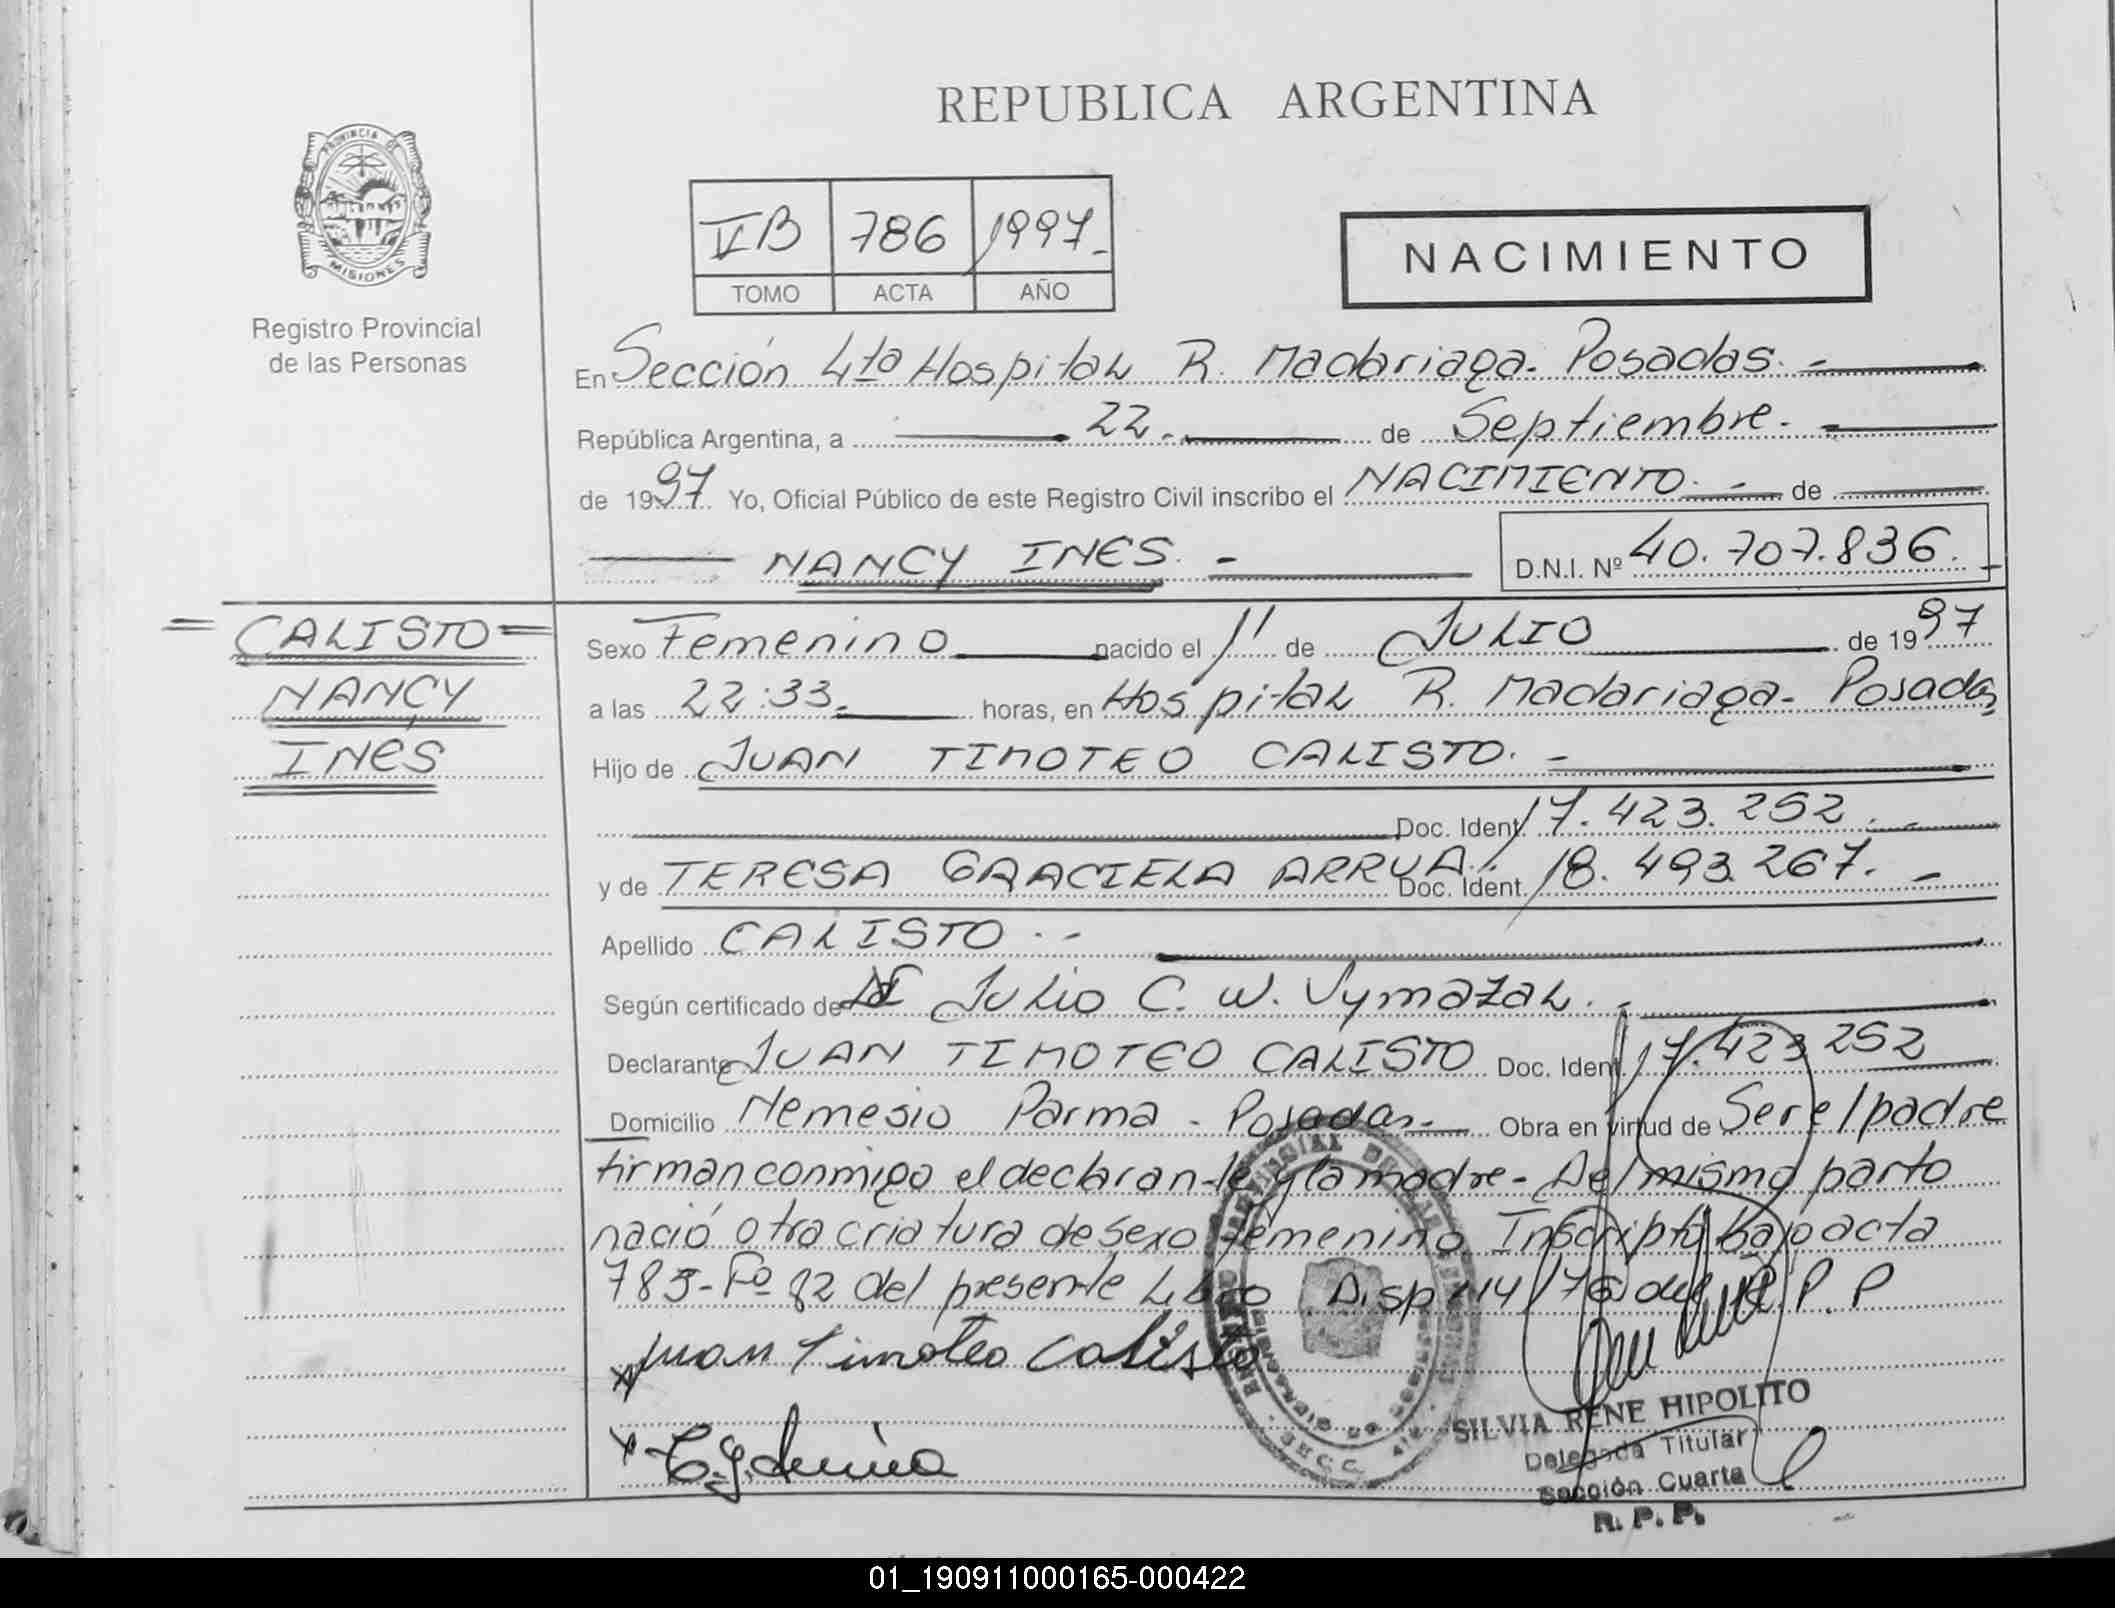 REPUBLICA ARGENTINA
PROVINCIA DE
MISIONES
Registro Provincial
de las Personas
VB 786 1997.-
TOMO ACTA AÑO
NACIMIENTO
En Sección 4ta Hospital R. Madariaga. Posadas.-
República Argentina, a 22.- de Septiembre.-
de 1997 Yo, Oficial Público de este Registro Civil inscribo el NACIMIENTO.- de
NANCY INES.- D.N.I. Nº 40.707.836.-
=CALISTO=
NANCY
INES
Sexo Femenino nacido el 11 de JULIO de 1997
a las 22:33.- horas, en Hospital R. Madariaga- Posadas
Hijo de JUAN TIMOTEO CALISTO.-
Doc. Ident. 17.423.252.-
y de TERESA GRACIELA ARRUA. Doc. Ident. 18.493.267.-
Apellido CALISTO.-
Según certificado de Julio C. W. Vymazal.-
Declarante JUAN TIMOTEO CALISTO Doc. Ident. 17.423 252
Domicilio Nemesio Parma - Posadas.- Obra en virtud de Ser el padre
firman conmigo el declarante y la madre- Del mismo parto
nació otra criatura de sexo femenino Inscripta bajo acta
785-Fº 82 del presente Libro Disp. 114/76 del R.P.P
x Juan Timoteo Calisto
x
SILVIA RENE HIPOLITO
Delegada Titular
Sección Cuarta
R. P. P.
01_190911000165-000422